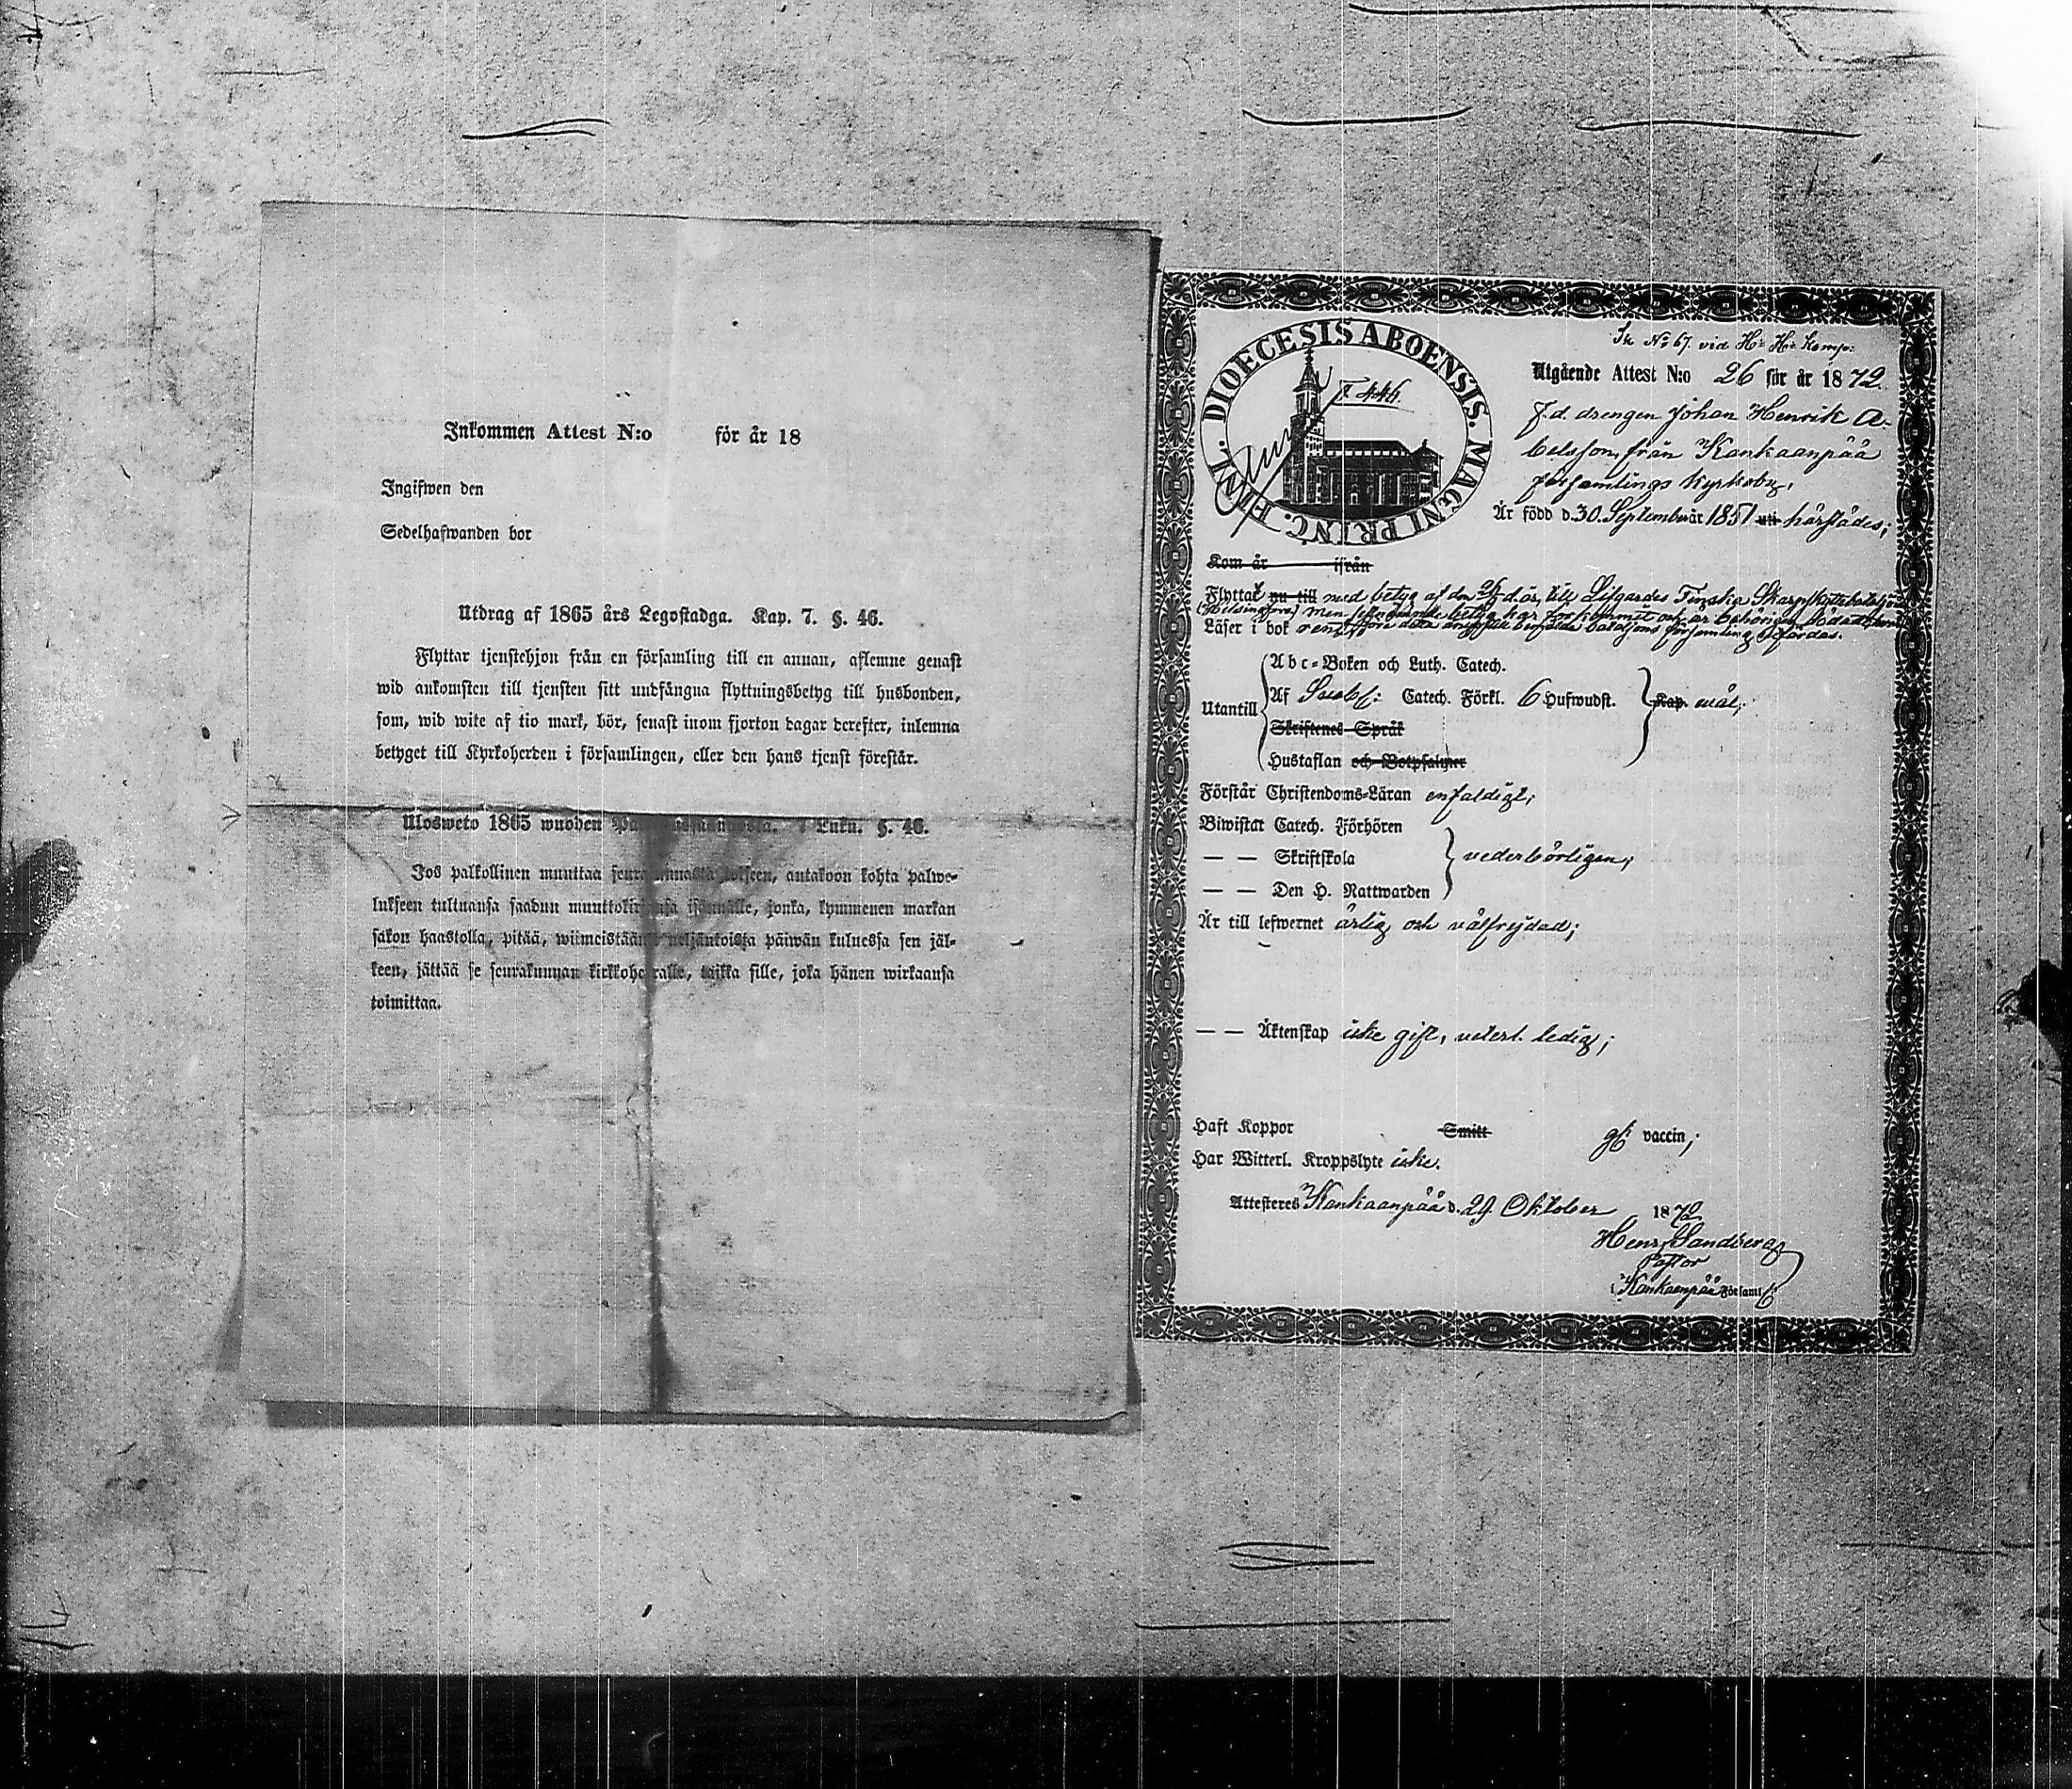 Inkommen Attest N:o för år 18
Ingifwen den
Sedelhafwanden bor
Utdrag af 1865 års Legostadga. Kap. 7. §. 46.
Flyttar tjenstehjon från en församling till en annan, aflemne genast
wid ankomsten till tjensten sitt undfångna flyttningsbetyg till husbonden,
som, wid wite af tio mark, bör, senast inom fjorton dagar derefter, inlemna
betyget till Kyrkoherden i församlingen, eller den hans tjenst förestår.
Ulosweto 1865 wuoden Luku. §. 46.
Jos palkollinen muuttaa toiseen, antakoon kohta palwe-
lukseen tultuansa saadun muuttokirjansa isännälle, jonka, kymmenen markan
sakon haastolla, pitää, wiimeistään neljäntoista päiwän kuluessa sen jäl-
keen, jättää se seurakunnan kirkkoherralle, taikka sille, joka hänen wirkaansa
toimittaa.
DIOECESIS ABOENSIS. MAGNI PRINC. FINL.
F. 446.
In No 67. vid H:s H:s komp:
Utgående Attest N:o 26 för år 1872.
F.d. drengen Johan Henrik A-
belsson, från Kankaanpää
församlings kyrkoby,
Är född d. 30. September år 1851 uti härstädes;
Kom år ifrån
Flyttat nu till med betyg af den d.år, till Lifgardes Finska Skarpskyttebataljon
(Helsingfors) men betyg har förkommit och är behörigen dödadt,
Läser i bok rent; församling utfärdas.
Abc-Boken och Luth. Catech.
Utantill Af Svebil: Catech. Förkl. 6 Hufwudst. Kap. mål;
Skriftenes Språk
Hustaflan och Botpsalmer
Förstår Christendoms-Läran enfaldigt;
Biwistat Catech. Förhören
— — Skriftskola vederbörligen;
— — Den H. Nattwarden
Är till lefwernet ärlig och välfrejdad;
— — Äktenskap icke gift, veterl. ledig;
Haft Koppor Smitt gf. vaccin;
Har Witterl. Kroppslyte icke.
Attesteres Kankaanpää d. 29 Oktober 1872
Henr. Sandberg
Pastor
i Kankaanpää Församl.